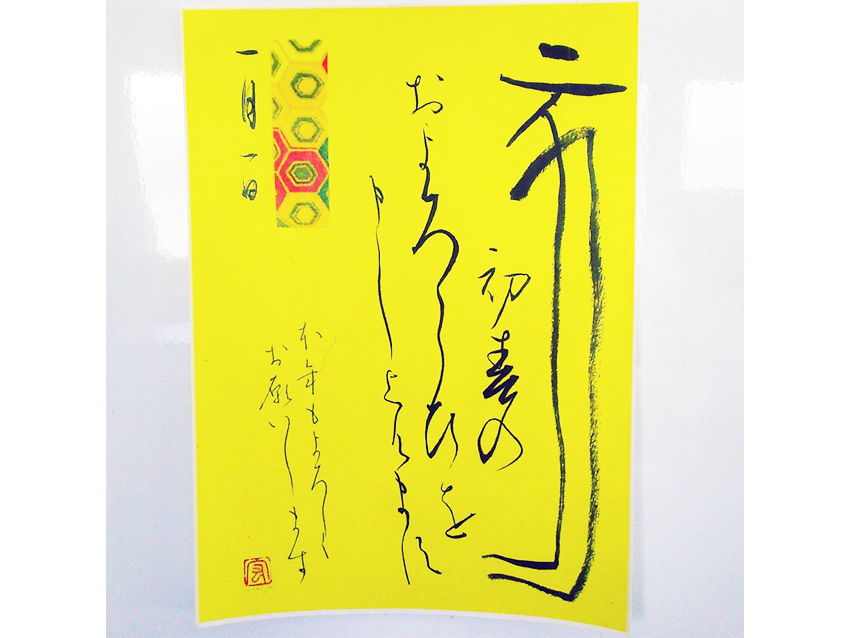 初春の
およろこびを
申し上げます
一月一日
本年もよろしく
お願いします